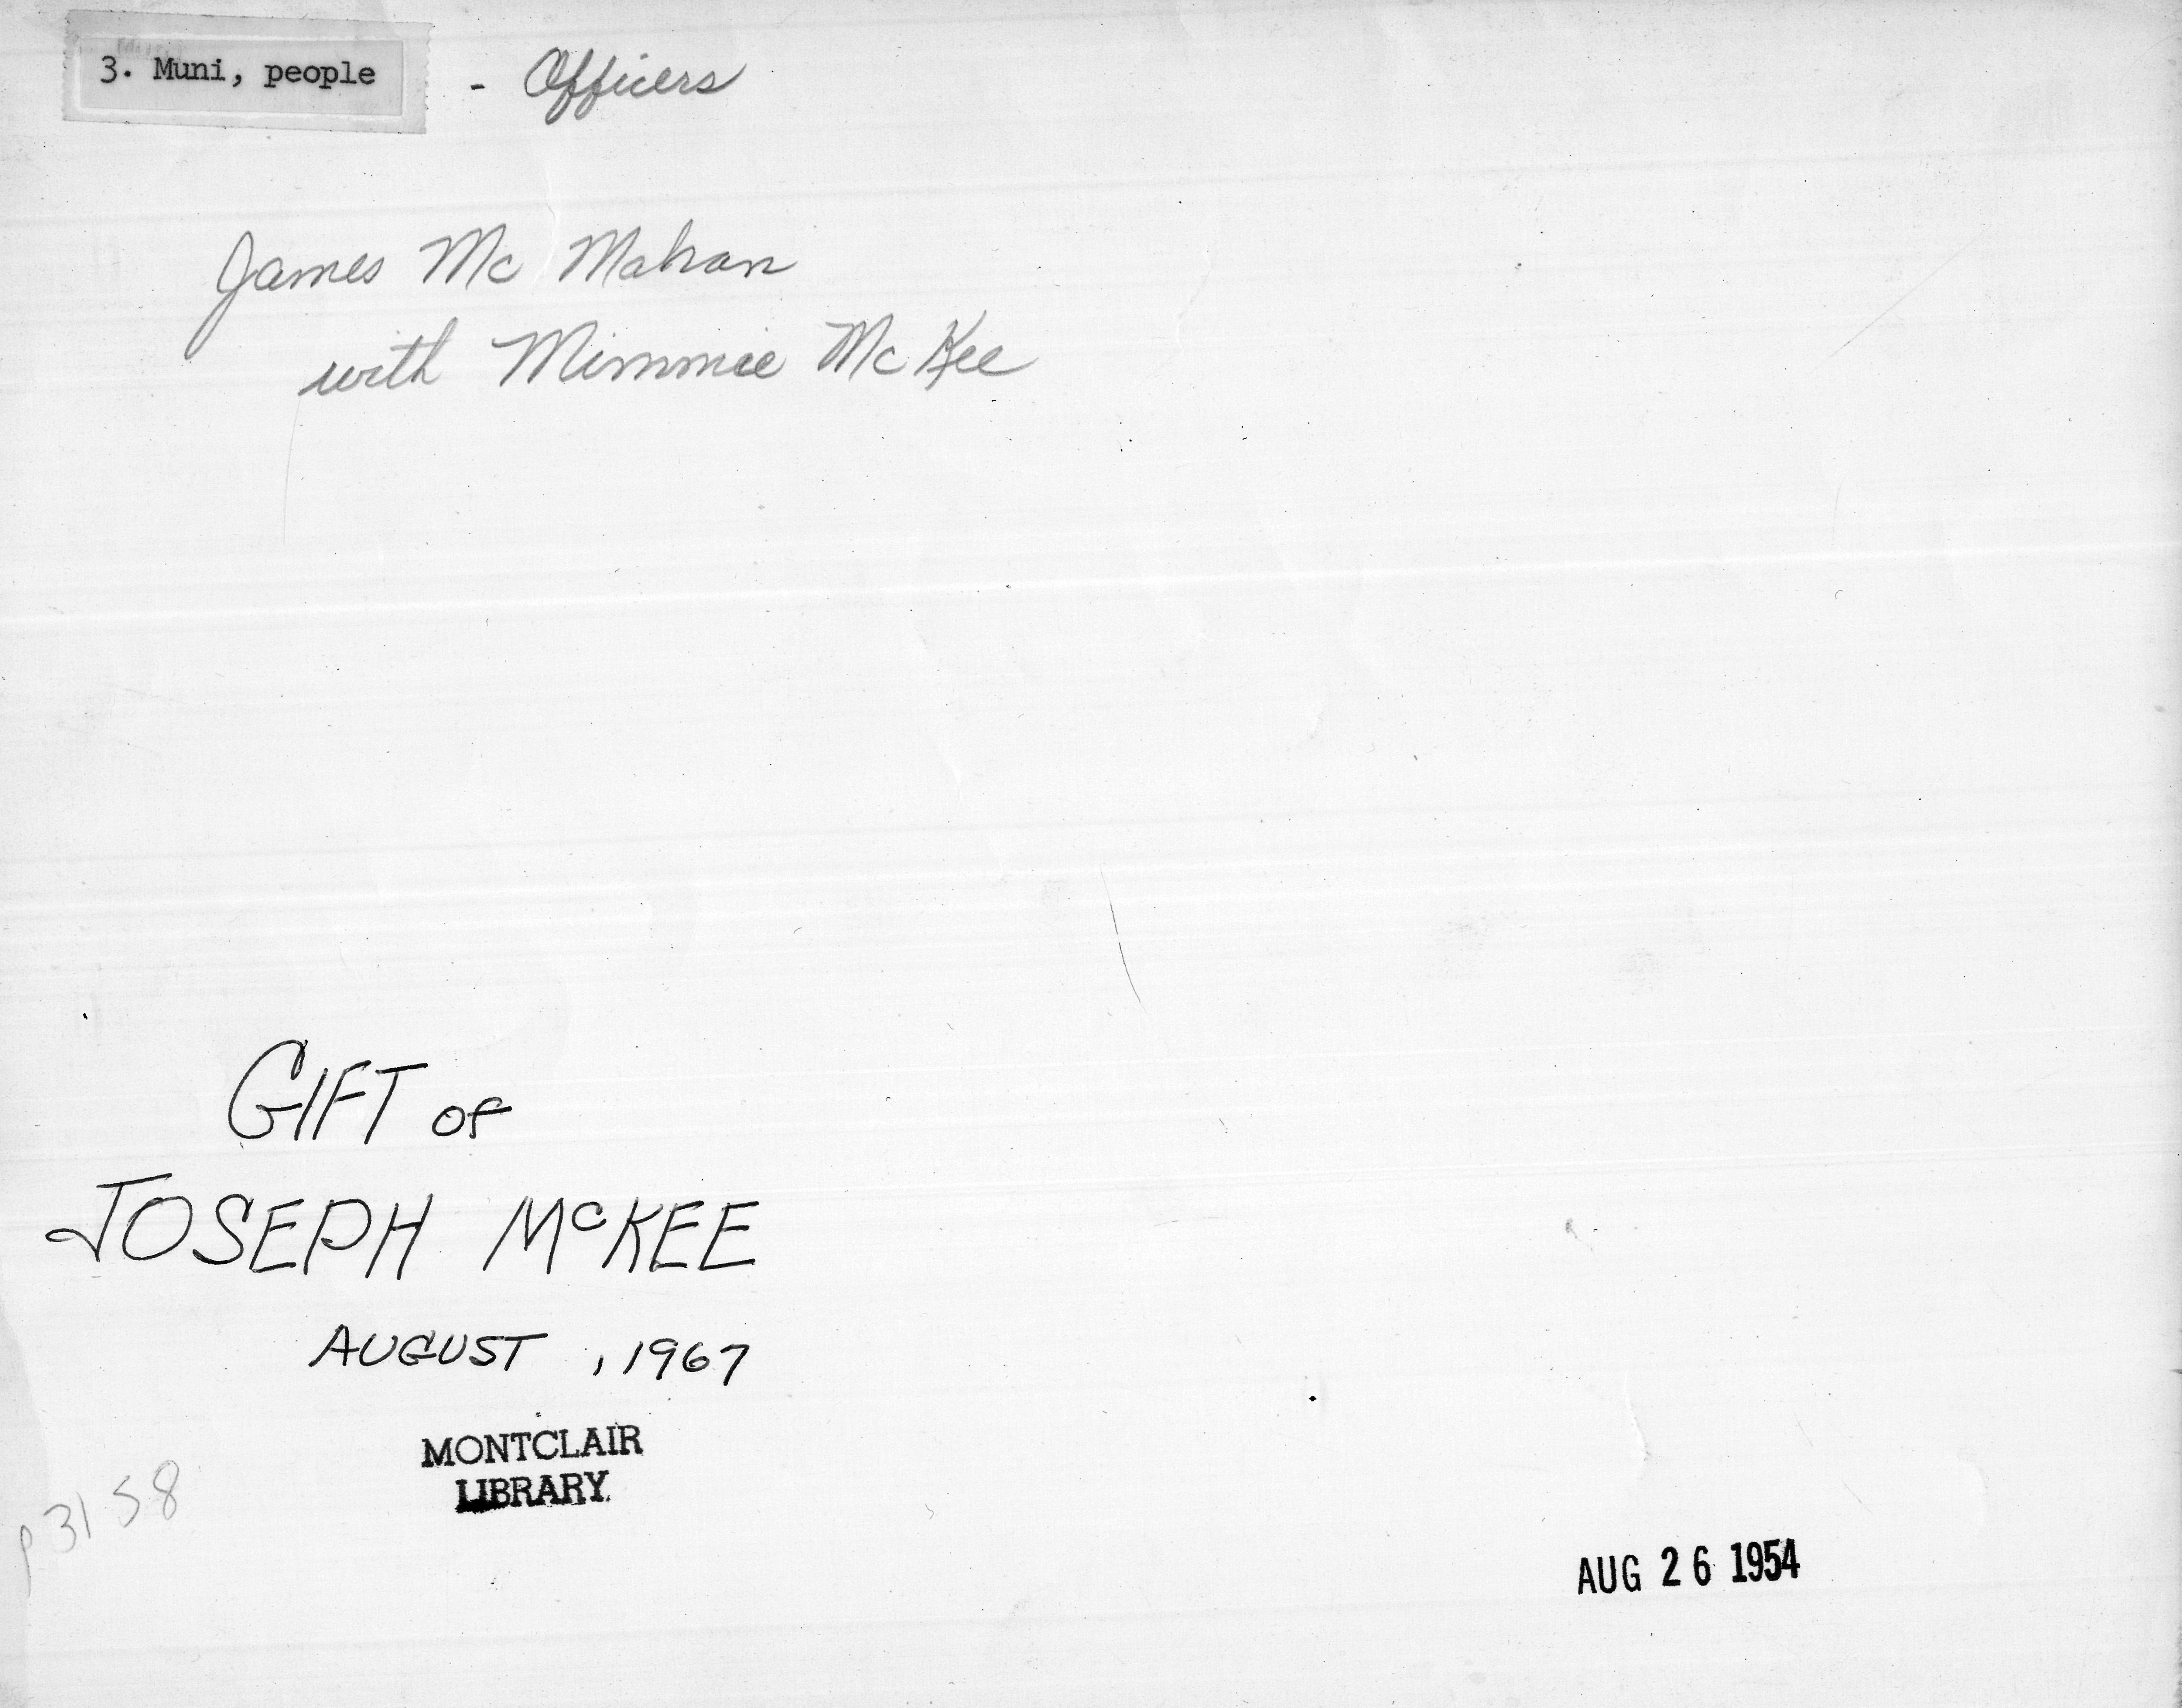 3. Muni, people - Officers
James Mc Mahan
with Mimmie McKee
GIFT OF
JOSEPH McKEE
AUGUST , 1967
MONTCLAIR
LIBRARY.
p3158
AUG 26 1954